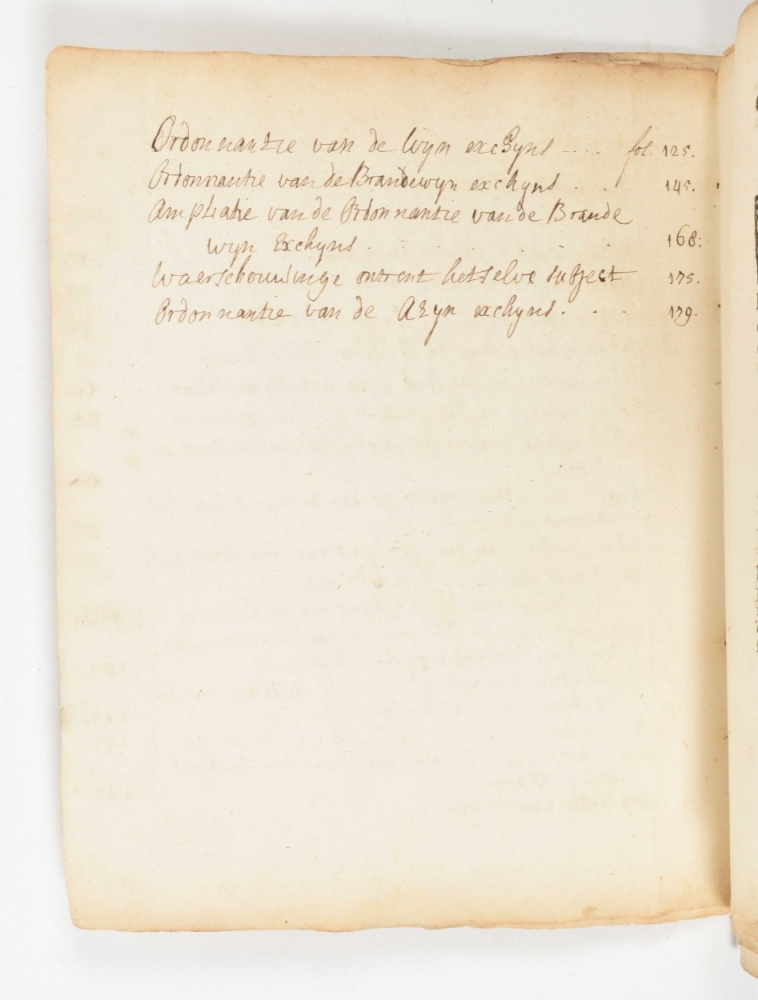 Ordonnantie van de Wyn exchyns - . . fol. 125.
Ordonnantie van de Brandewyn exchyns . . . 145.
Ampliatie van de Ordonnantie van de Brande
wyn Exchyns . . . . . . . 168:
Waerschouwinge ontrent hetselve subject 175.
Ordonnantie van de Azyn exchyns . . . 179.